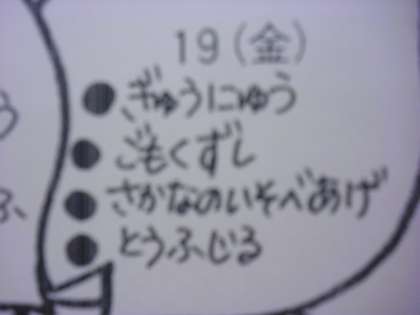 19(金)
●ぎゅうにゅう
●ごもくずし
●さかなのいそべあげ
●とうふじる